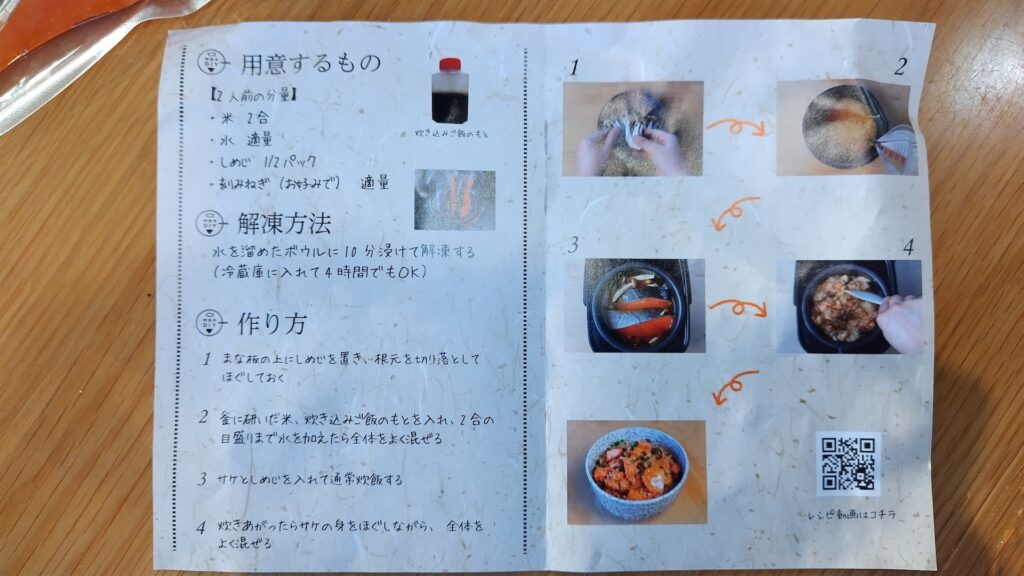 用意するもの
【2人前の分量】
・米 2合
・水 適量
・しめじ 1/2パック
・刻みねぎ（お好みで） 適量
炊き込みご飯のもと
解凍方法
氷を溜めたボウルに10分浸けて解凍する
（冷蔵庫に入れて4時間でもOK）
作り方
1 まな板の上にしめじを置き、根元を切り落として
ほぐしておく
2 釜に研いだ米、炊き込みご飯のもとを入れ、2合の
目盛りまで水を加えたら全体をよく混ぜる
3 サケとしめじを入れて通常炊飯する
4 炊きあがったらサケの身をほぐしながら、全体を
よく混ぜる
1
2
3
4
レシピ動画はコチラ